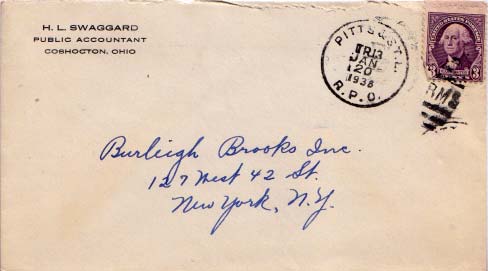 H. L. SWAGGARD
PUBLIC ACCOUNTANT
COSHOCTON, OHIO
PITTS & ST. L.
TR13
JAN
20
1938
R.P.O.
RMS
UNITED STATES POSTAGE
3 3
Burleigh Brooks Inc.
127 West 42 St.
New York, N.Y.